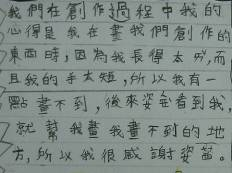 我們在創作過程中我的
心得是我在畫我們創作的
東西時,因為我長得太ㄞˇ,而
且我的手太短,所以我有一
點畫不到,後來姿茹看到我,
就幫我畫我畫不到的地
方,所以我很感謝姿茹。